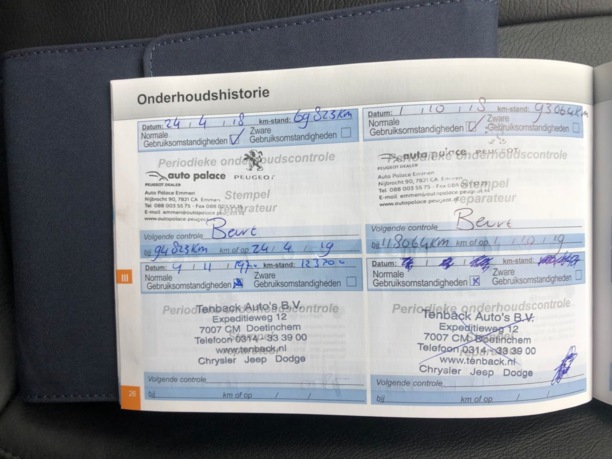 Onderhoudshistorie
Datum: 24 , 4 , 18 km-stand: 69823km
Normale Gebruiksomstandigheden
Zware Gebruiksomstandigheden
Periodieke onderhoudscontrole
auto palace PEUGEOT
PEUGEOT DEALER
Auto Palace Emmen
Nijbracht 90, 7821 CA Emmen
Tel. 088 003 55 75 - Fax 088
E-mail emmen@autopalace.peugeot.nl
www.autopalace.peugeot.nl
Stempel
reparateur
Volgende controle Beurt
bij 94823km km of op 24 / 4 / 19
Datum: 1 , 10 , 18 km-stand: 93064km
Normale Gebruiksomstandigheden
Zware Gebruiksomstandigheden
Periodieke onderhoudscontrole
auto palace PEUGEOT
PEUGEOT DEALER
Auto Palace Emmen
Nijbracht 90, 7821 CA Emmen
Tel. 088 003 55 75 - Fax 088
E-mail emmen@autopalace.peugeot.nl
www.autopalace.peugeot.nl
Stempel
reparateur
Volgende controle Beurt
bij 118064km km of op 1 / 10 / 19
Datum: 4 , 4 km-stand:
Normale Gebruiksomstandigheden
Zware Gebruiksomstandigheden
Periodieke onderhoudscontrole
Tenback Auto's B.V.
Expeditieweg 12
7007 CM Doetinchem
Telefoon 0314 - 33 39 00
www.tenback.nl
Chrysler Jeep Dodge
Volgende controle
bij km of op / /
Datum: km-stand:
Normale Gebruiksomstandigheden
Zware Gebruiksomstandigheden
Periodieke onderhoudscontrole
Tenback Auto's B.V.
Expeditieweg 12
7007 CM Doetinchem
Telefoon 0314 - 33 39 00
www.tenback.nl
Chrysler Jeep Dodge
Volgende controle
bij km of op / /
III
28